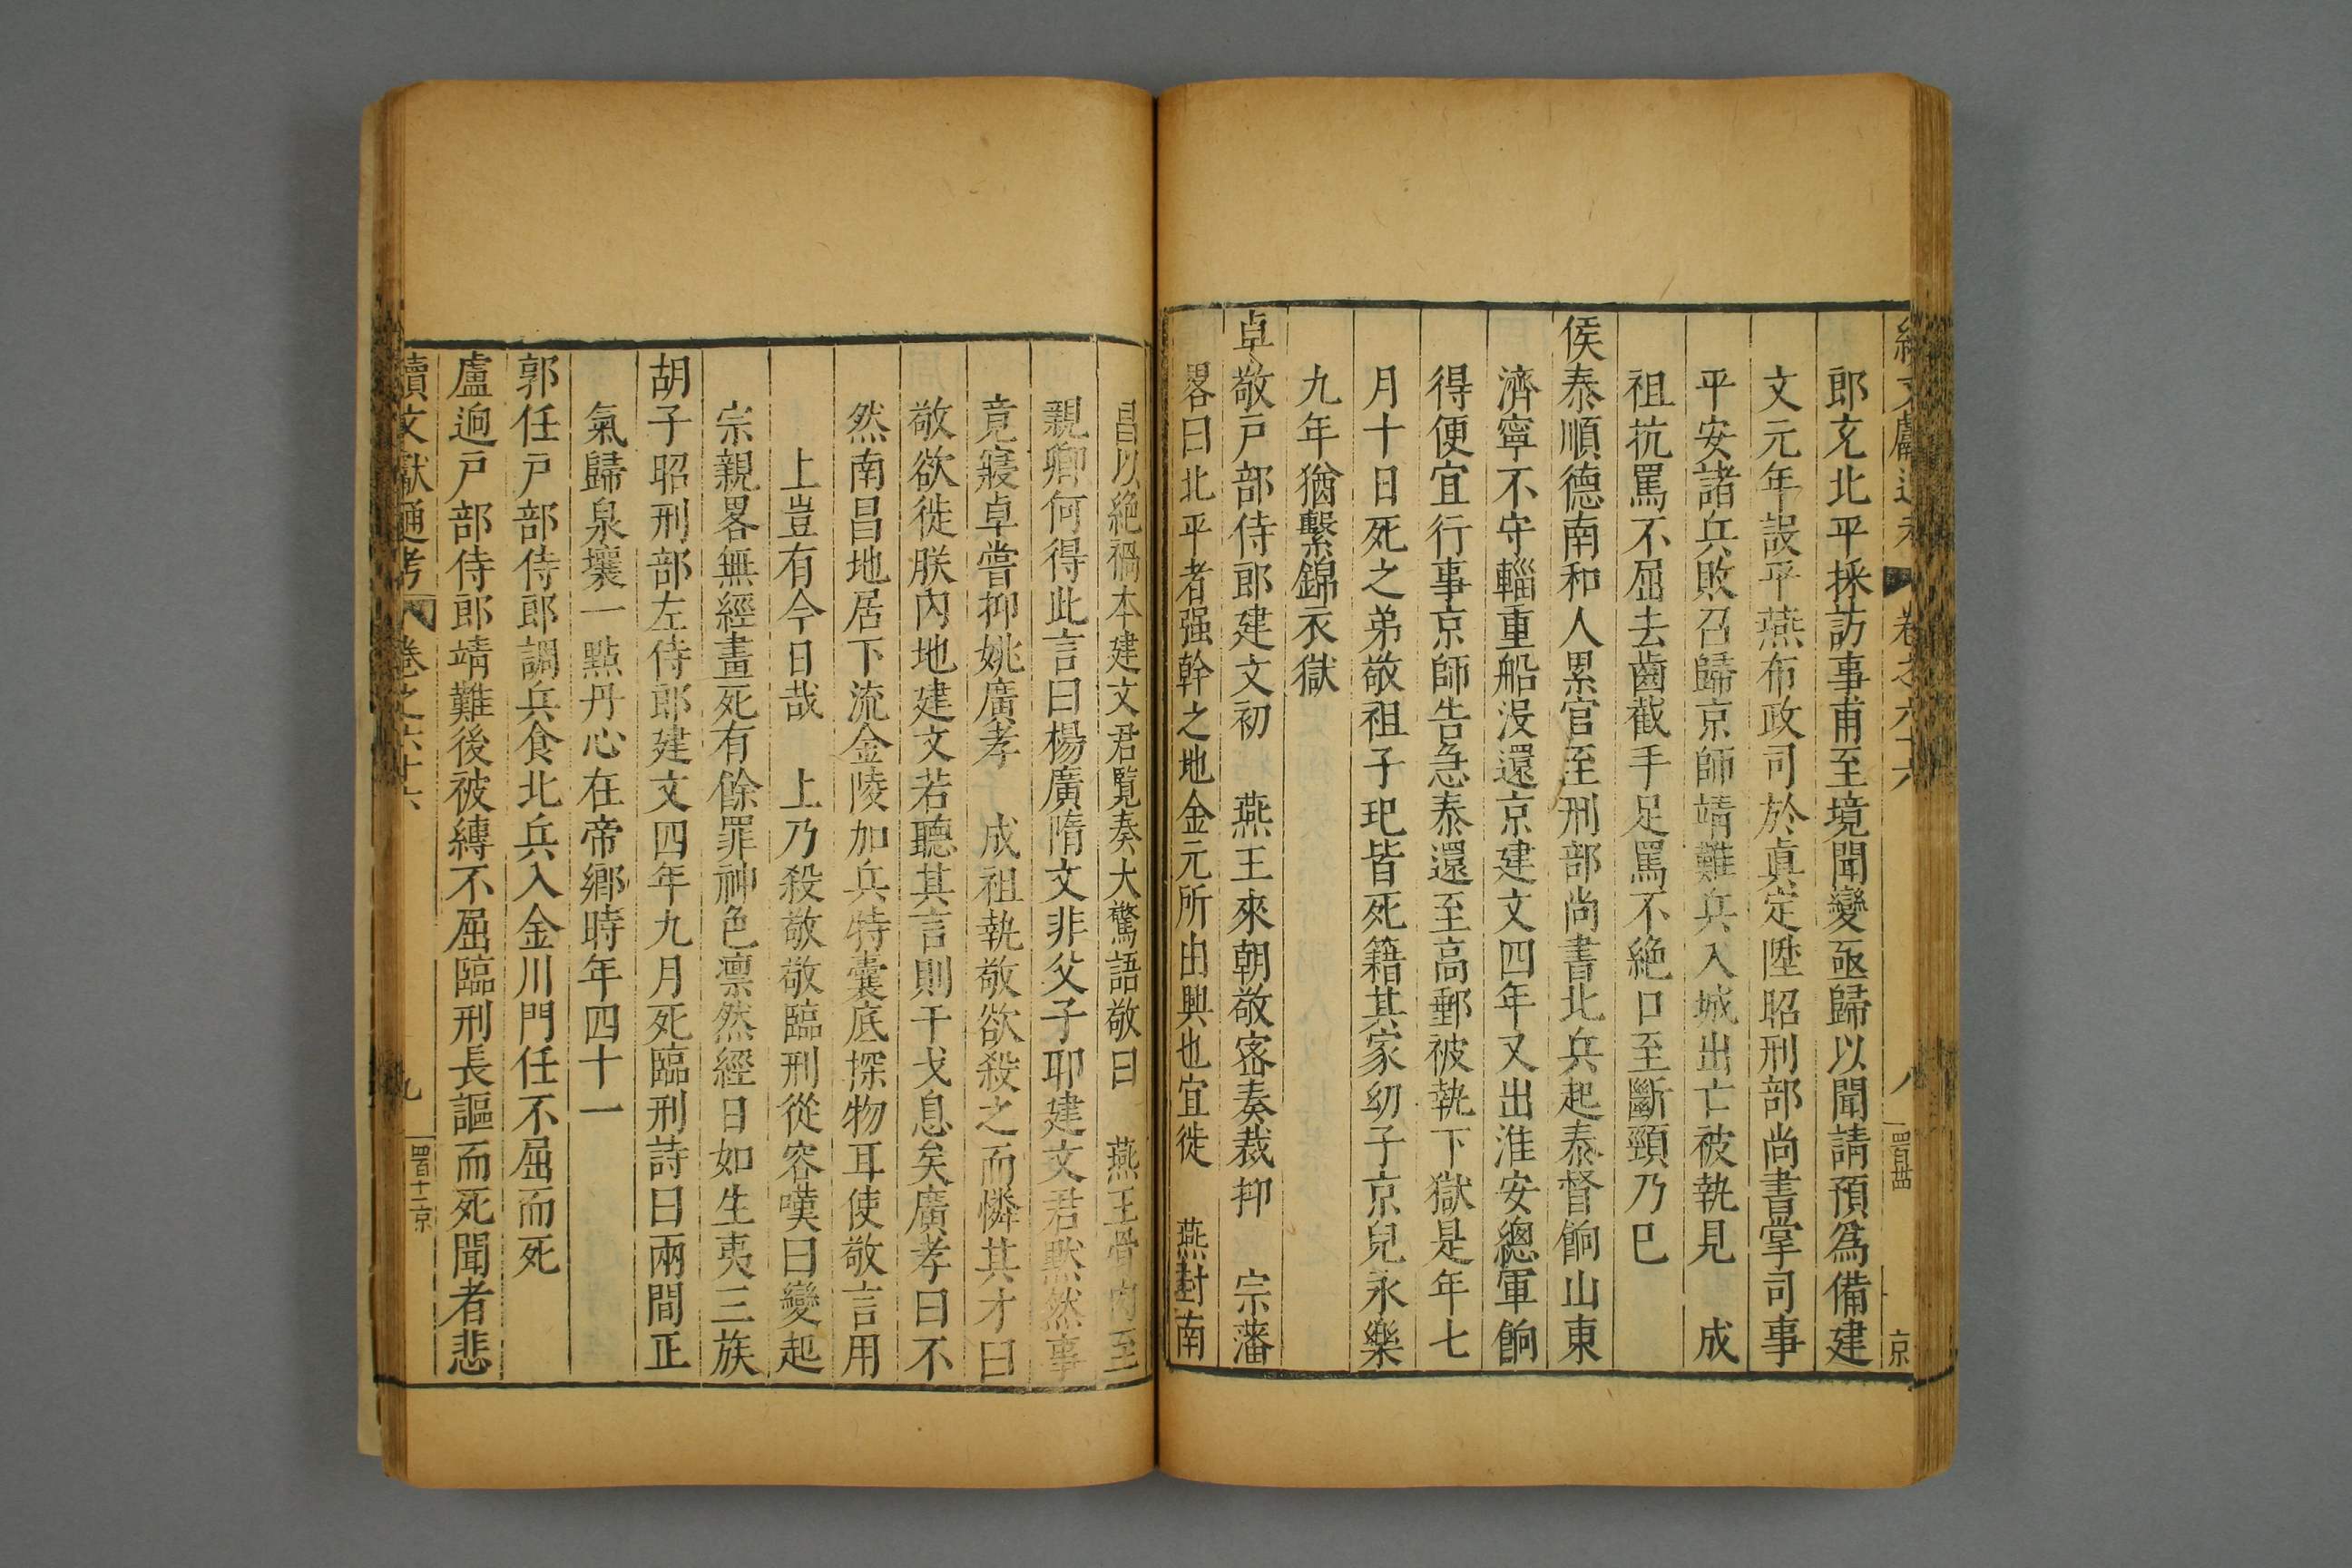 續文獻通考 卷之六十六 八 京
郎充北平採訪事甫至境聞變亟歸以聞請預爲備建
文元年設平燕布政司於眞定陞昭刑部尚書掌司事
平安諸兵敗召歸京師靖難兵入城出亡被執見 成
祖抗罵不屈去齒截手足罵不絶口至斷頸乃巳
侯泰順德南和人累官至刑部尚書北兵起泰督餉山東
濟寧不守輜重船没還京建文四年又出淮安總軍餉
得便宜行事京師告急泰還至高郵被執下獄是年七
月十日死之弟敬祖子玘皆死籍其家幼子京兒永樂
九年猶繫錦衣獄
卓敬戸部侍郎建文初 燕王來朝敬密奏裁抑 宗藩
畧曰北平者强幹之地金元所由興也宜徙 燕封南
昌以絶禍本建文君覧奏大驚語敬曰 燕王骨肉至
親卿何得此言曰楊廣隋文非父子耶建文君黙然事
竟寢卓嘗抑姚廣孝 成祖執敬欲殺之而憐其才曰
敬欲徙朕內地建文若聽其言則干戈息矣廣孝曰不
然南昌地居下流金陵加兵特囊底探物耳使敬言用
上豈有今日哉 上乃殺敬敬臨刑從容嘆曰變起
宗親畧無經畫死有餘罪神色凛然經日如生夷三族
胡子昭刑部左侍郎建文四年九月死臨刑詩曰兩間正
氣歸泉壤一點丹心在帝鄉時年四十一
郭任戸部侍郎調兵食北兵入金川門任不屈而死
盧逈戸部侍郎靖難後被縛不屈臨刑長謳而死聞者悲
續文獻通考 卷之六十六 九 四百十二 京